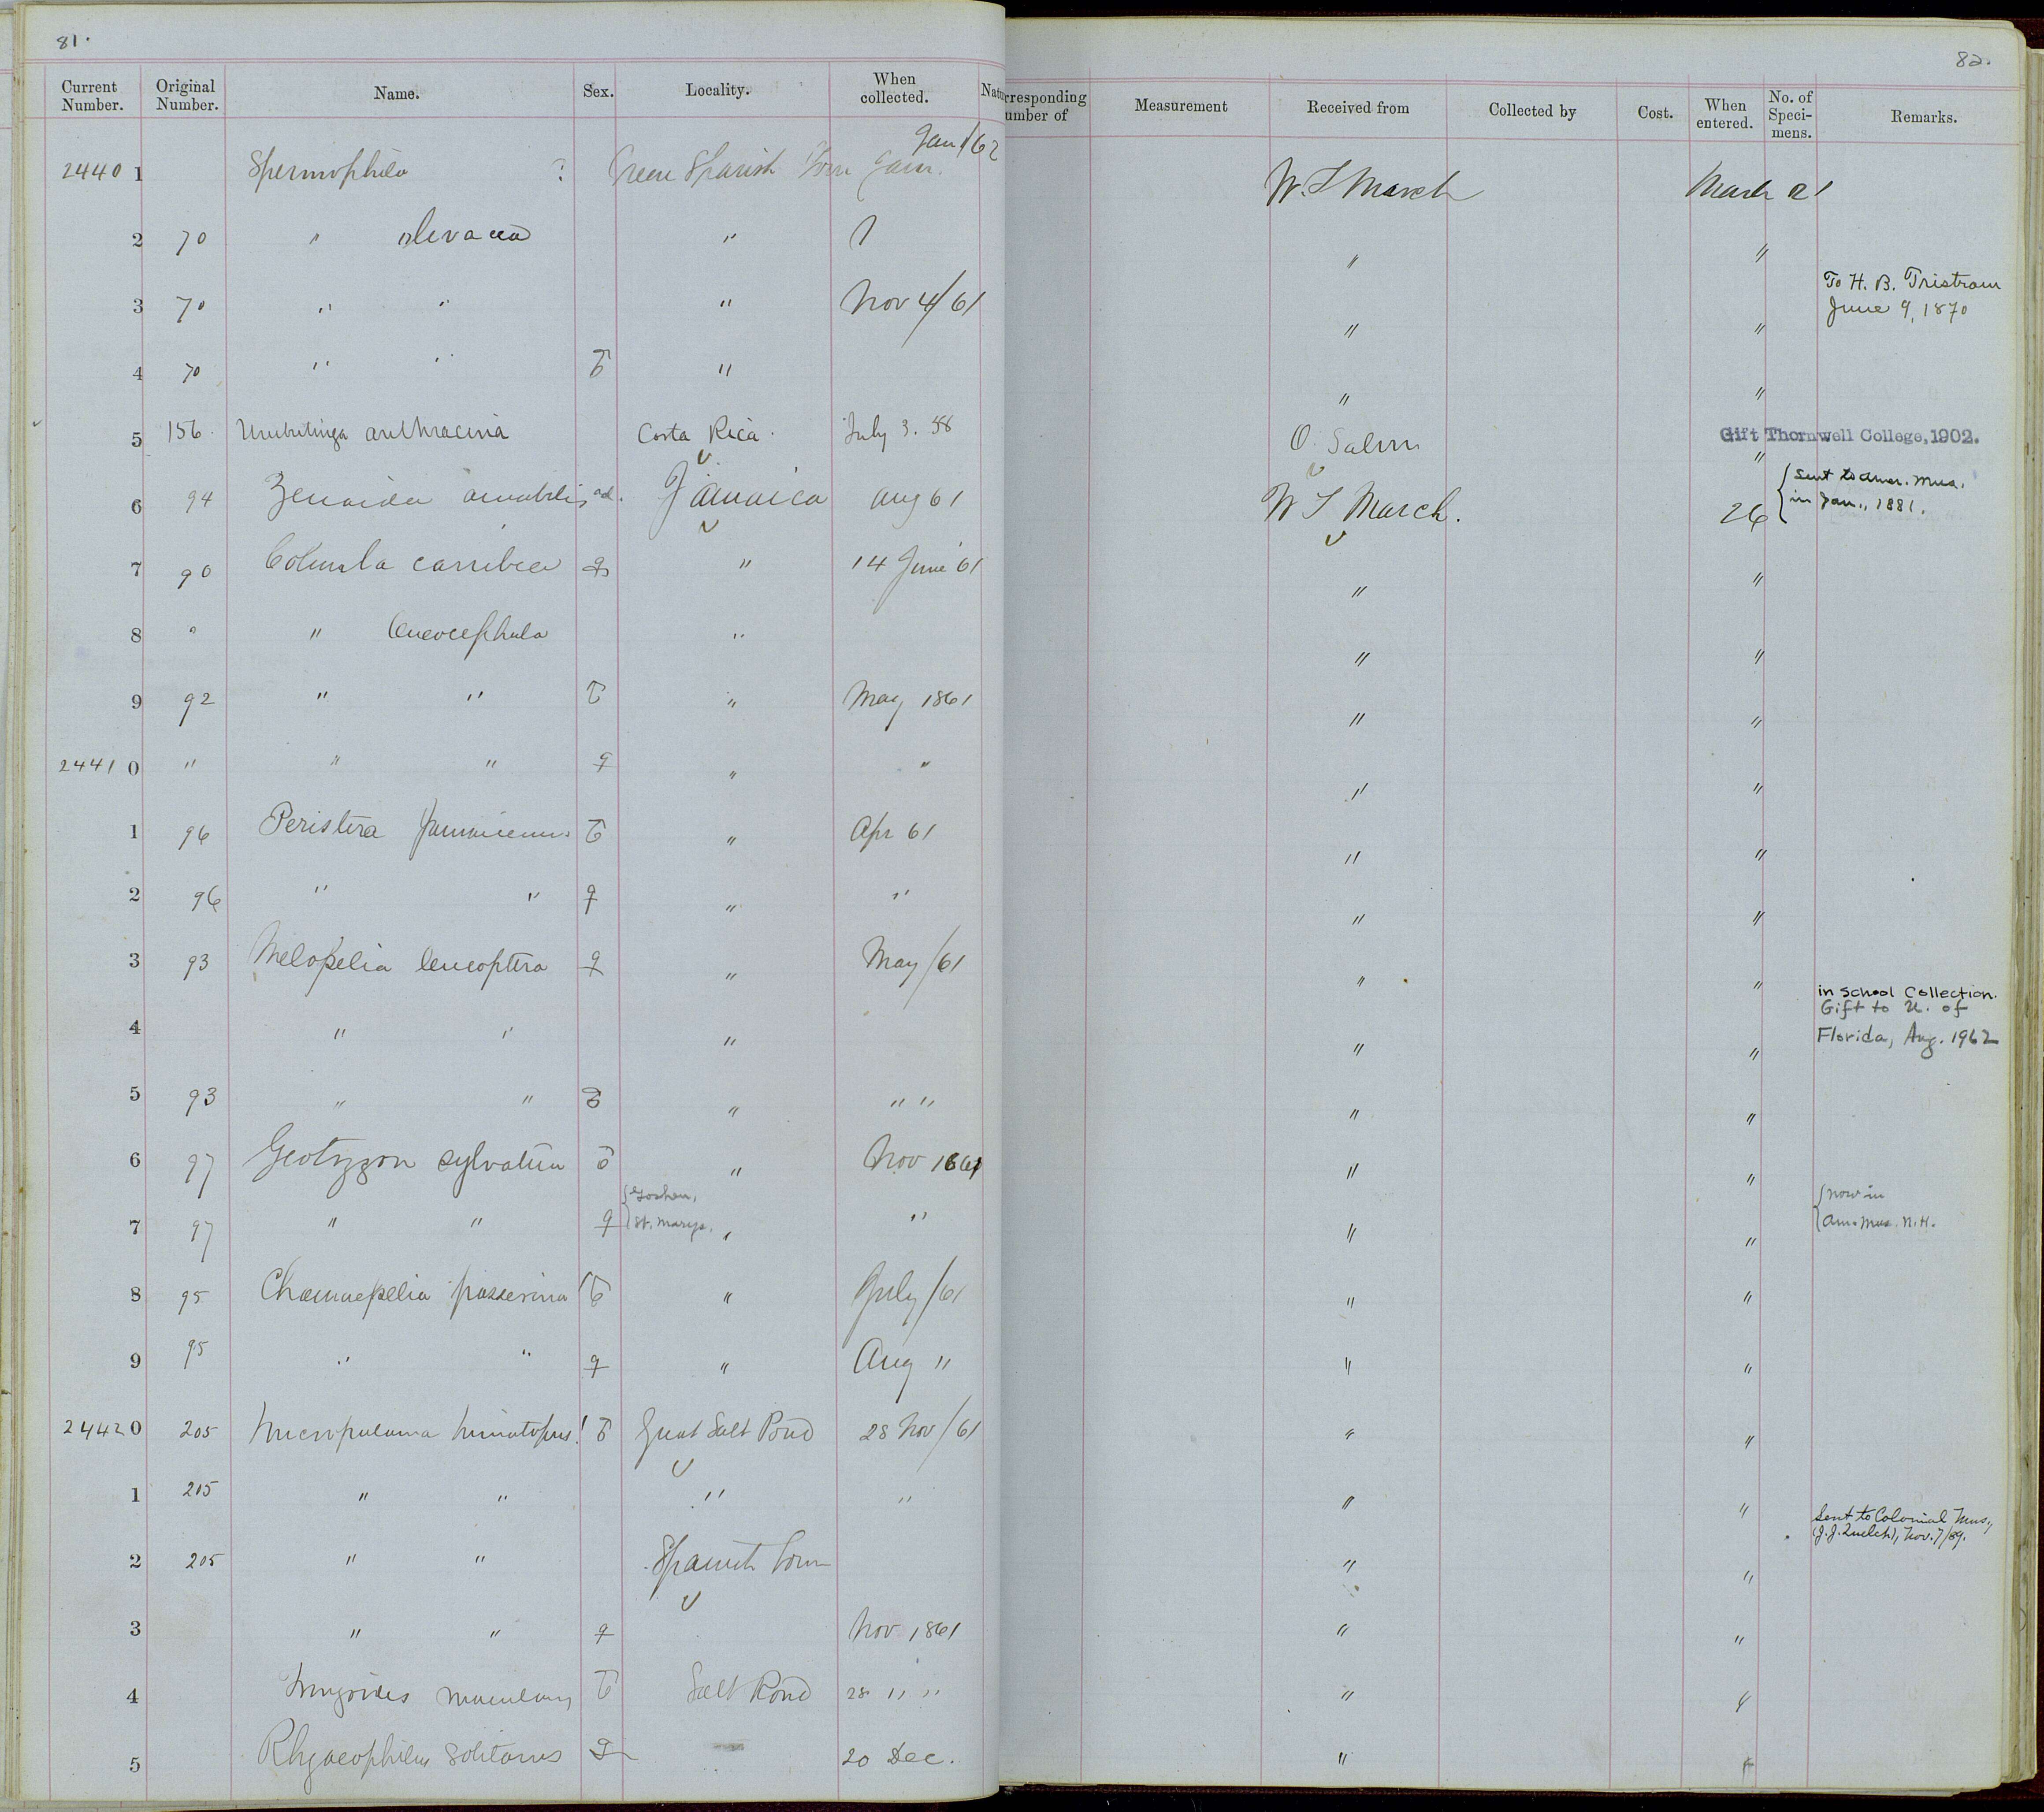 81.
82.
Current Number. Original Number. Name. Sex. Locality. When collected. Natu
rresponding umber of Measurement Received from Collected by Cost. When entered. No. of Speci- mens. Remarks.
24401 Spermophila ? Spanish Town Jam. Jan/62 W. T March March 21
2 70 " olivacea " "  "
3 70 " " " Nov 4/61 " " To H. B. Tristram
June 9, 1870
4 70 " " " " "
5 156 Urubitinga anthracina Costa Rica. July 3. 58 O. Salvin " Gift Thornwell College, 1902.
6 94 Zenaida amabilis ad. Jamaica Aug 61 W T March. 26 Sent to Amer. Mus.
in Jan., 1881.
7 90 Columba carribea ♀ " 14 June 61 " "
8 " " leucocephala " " "
9 92 " " ♂ " May 1861 " "
24410 " " " ♀ " " " "
1 96 Peristera Jamaicensis ♂ " Apr 61 " "
2 96 " " ♀ " " " "
3 93 Melopelia leucoptera ♀ " May/61 " "
4 " " " " " in School Collection.
Gift to U. of
Florida, Aug. 1962
5 93 " " " " " " "
6 97 Geotrygon sylvatica ♂ " Nov 1861 " "
7 97 " " ♀ Goshen,
St. Marys. " " " " now in
Am. Mus. N.H.
8 95 Chamaepelia passerina ♂ " July/61 " "
9 95 " " ♀ " Aug " " "
24420 205 Micropalama himatopus! ♂ Great Salt Pond 28 Nov/61 " "
1 205 " " " " " " Sent to Colonial Mus.,
(J. J. Quelch), Nov. 7/89.
2 205 " " Spanish Town " "
3 " " ♀ Nov 1861 " "
4 ♂ Salt Pond 28 " " " "
5 Rhyacophilus solitarius ♀ 20 Dec. " "